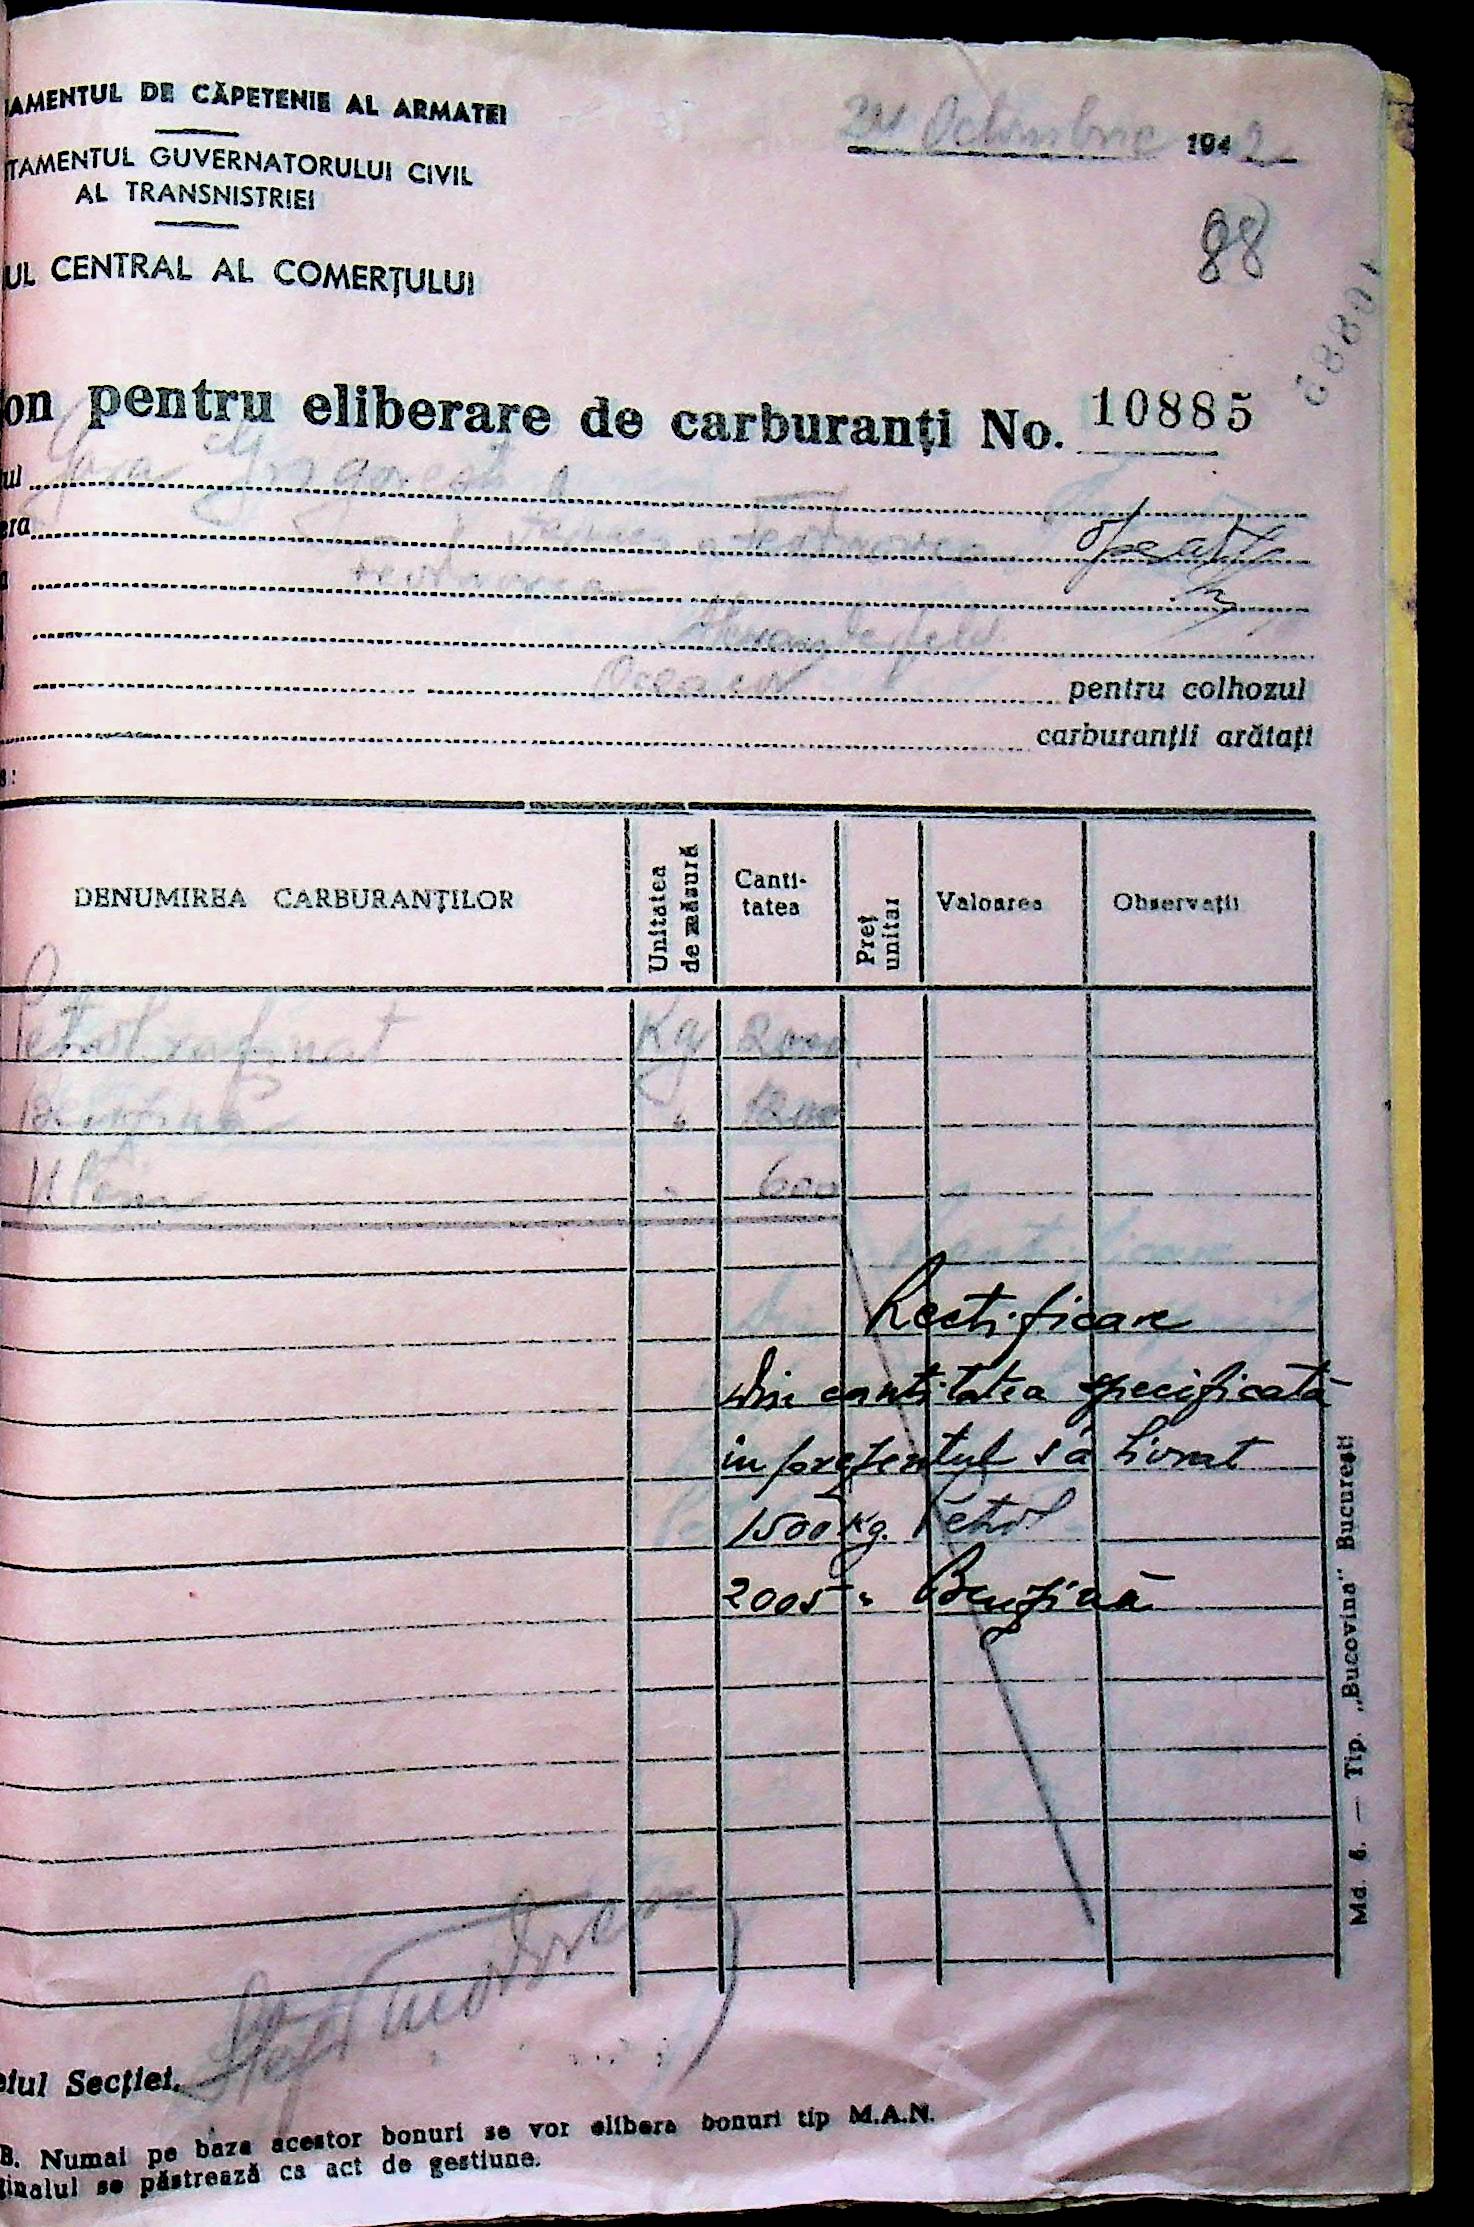 AMENTUL DE CĂPETENIE AL ARMATEI
Octombrie 1942
TAMENTUL GUVERNATORULUI CIVIL
AL TRANSNISTRIEI
88
UL CENTRAL AL COMERŢULUI
on pentru eliberare de carburanţi No. 10885
ul Gara Grigorești
era
Oceacov pentru colhozul
carburanţii arătaţi
DENUMIREA CARBURANŢILOR
Unitatea de măsură
Canti-tatea
Preţ unitar
Valoarea
Observaţii
Petrol rafinat Kg 2000
Benzină " 1200
600
Rectificare
din cantitatea specificată
in prezentul să livrat
1500 Kg. Petrol
2005 " Benzină
eful Secţiei,
B. Numai pe baza acestor bonuri se vor elibera bonuri tip M.A.N.
ginalul se păstrează ca act de gestiune.
Md. 6. — Tip. „Bucovina" Bucureşti